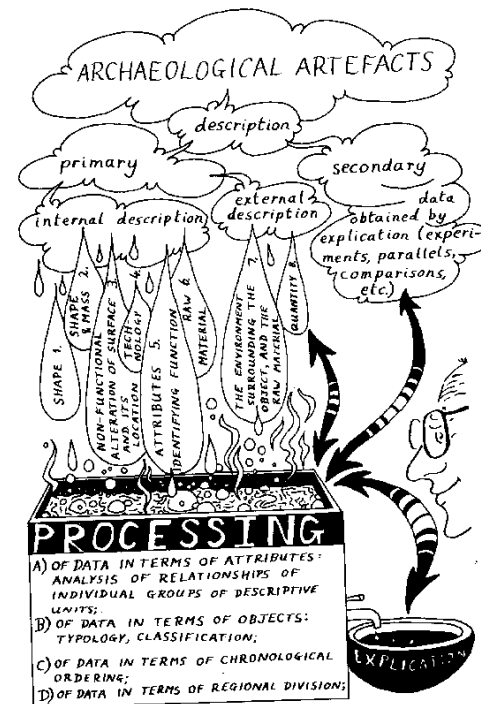 ARCHAEOLOGICAL ARTEFACTS
description
primary
secondary
internal description
external
description
data
obtained by
explication (experi-
ments, parallels,
comparisons,
etc.)
SHAPE 1.
SHAPE 2.
& MASS
NON-FUNCTIONAL 3.
ALTERATION OF SURFACE
AND ITS
LOCATION
4.
TECH
NOLOGY
ATTRIBUTES 5.
IDENTIFYING FUNCTION
RAW 6.
MATERIAL
THE ENVIRONMENT 7.
SURROUNDING THE
OBJECT, AND THE
RAW MATERIAL
QUANTITY 8.
PROCESSING
A) OF DATA IN TERMS OF ATTRIBUTES:
ANALYSIS OF RELATIONSHIPS OF
INDIVIDUAL GROUPS OF DESCRIPTIVE
UNITS;
B) OF DATA IN TERMS OF OBJECTS:
TYPOLOGY, CLASSIFICATION;
C) OF DATA IN TERMS OF CHRONOLOGICAL
ORDERING;
D) OF DATA IN TERMS OF REGIONAL DIVISION;
EXPLICATION